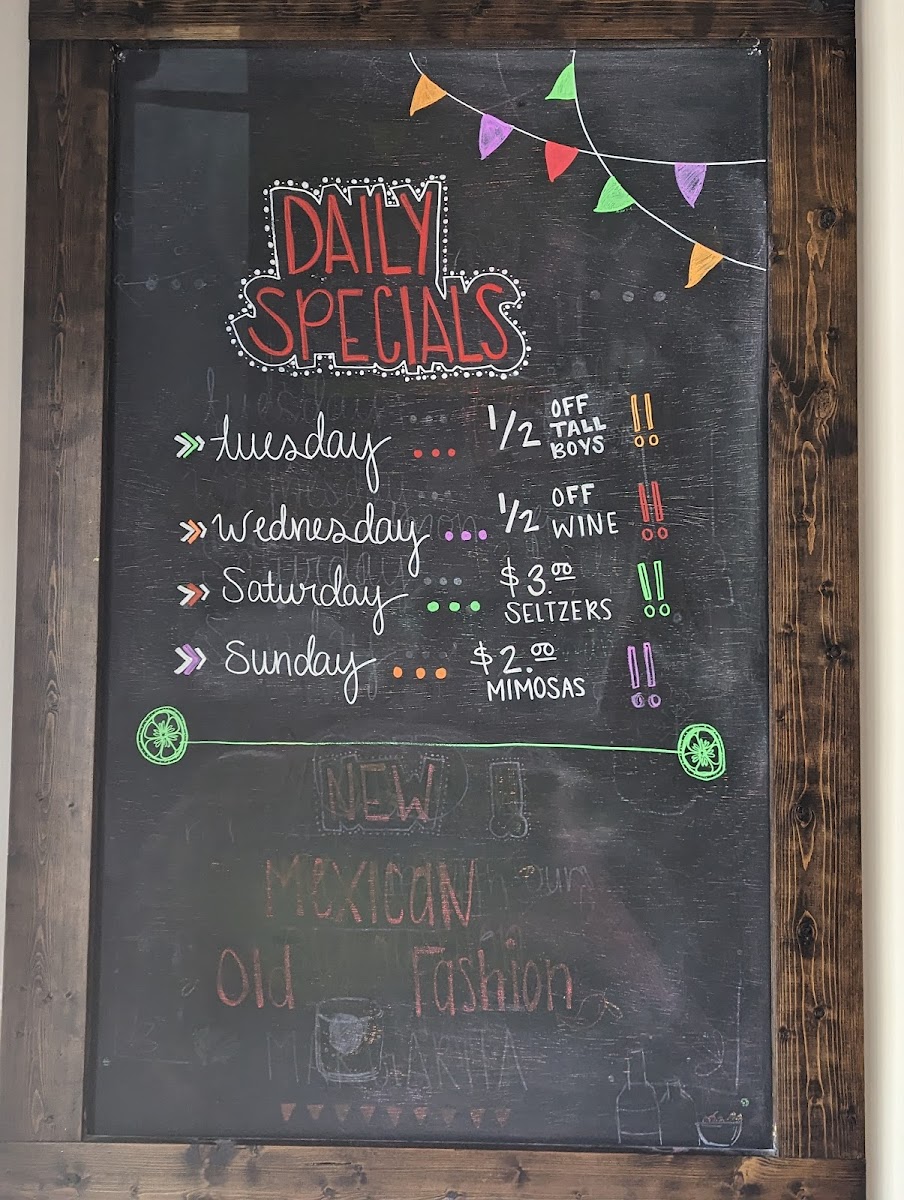 DAILY
SPECIALS
tuesday ... 1/2 OFF TALL BOYS !!
Wednesday ... 1/2 OFF WINE !!
Saturday ... $3.00 SELTZERS !!
Sunday ... $2.00 MIMOSAS !!
NEW !
Mexican
Old Fashion